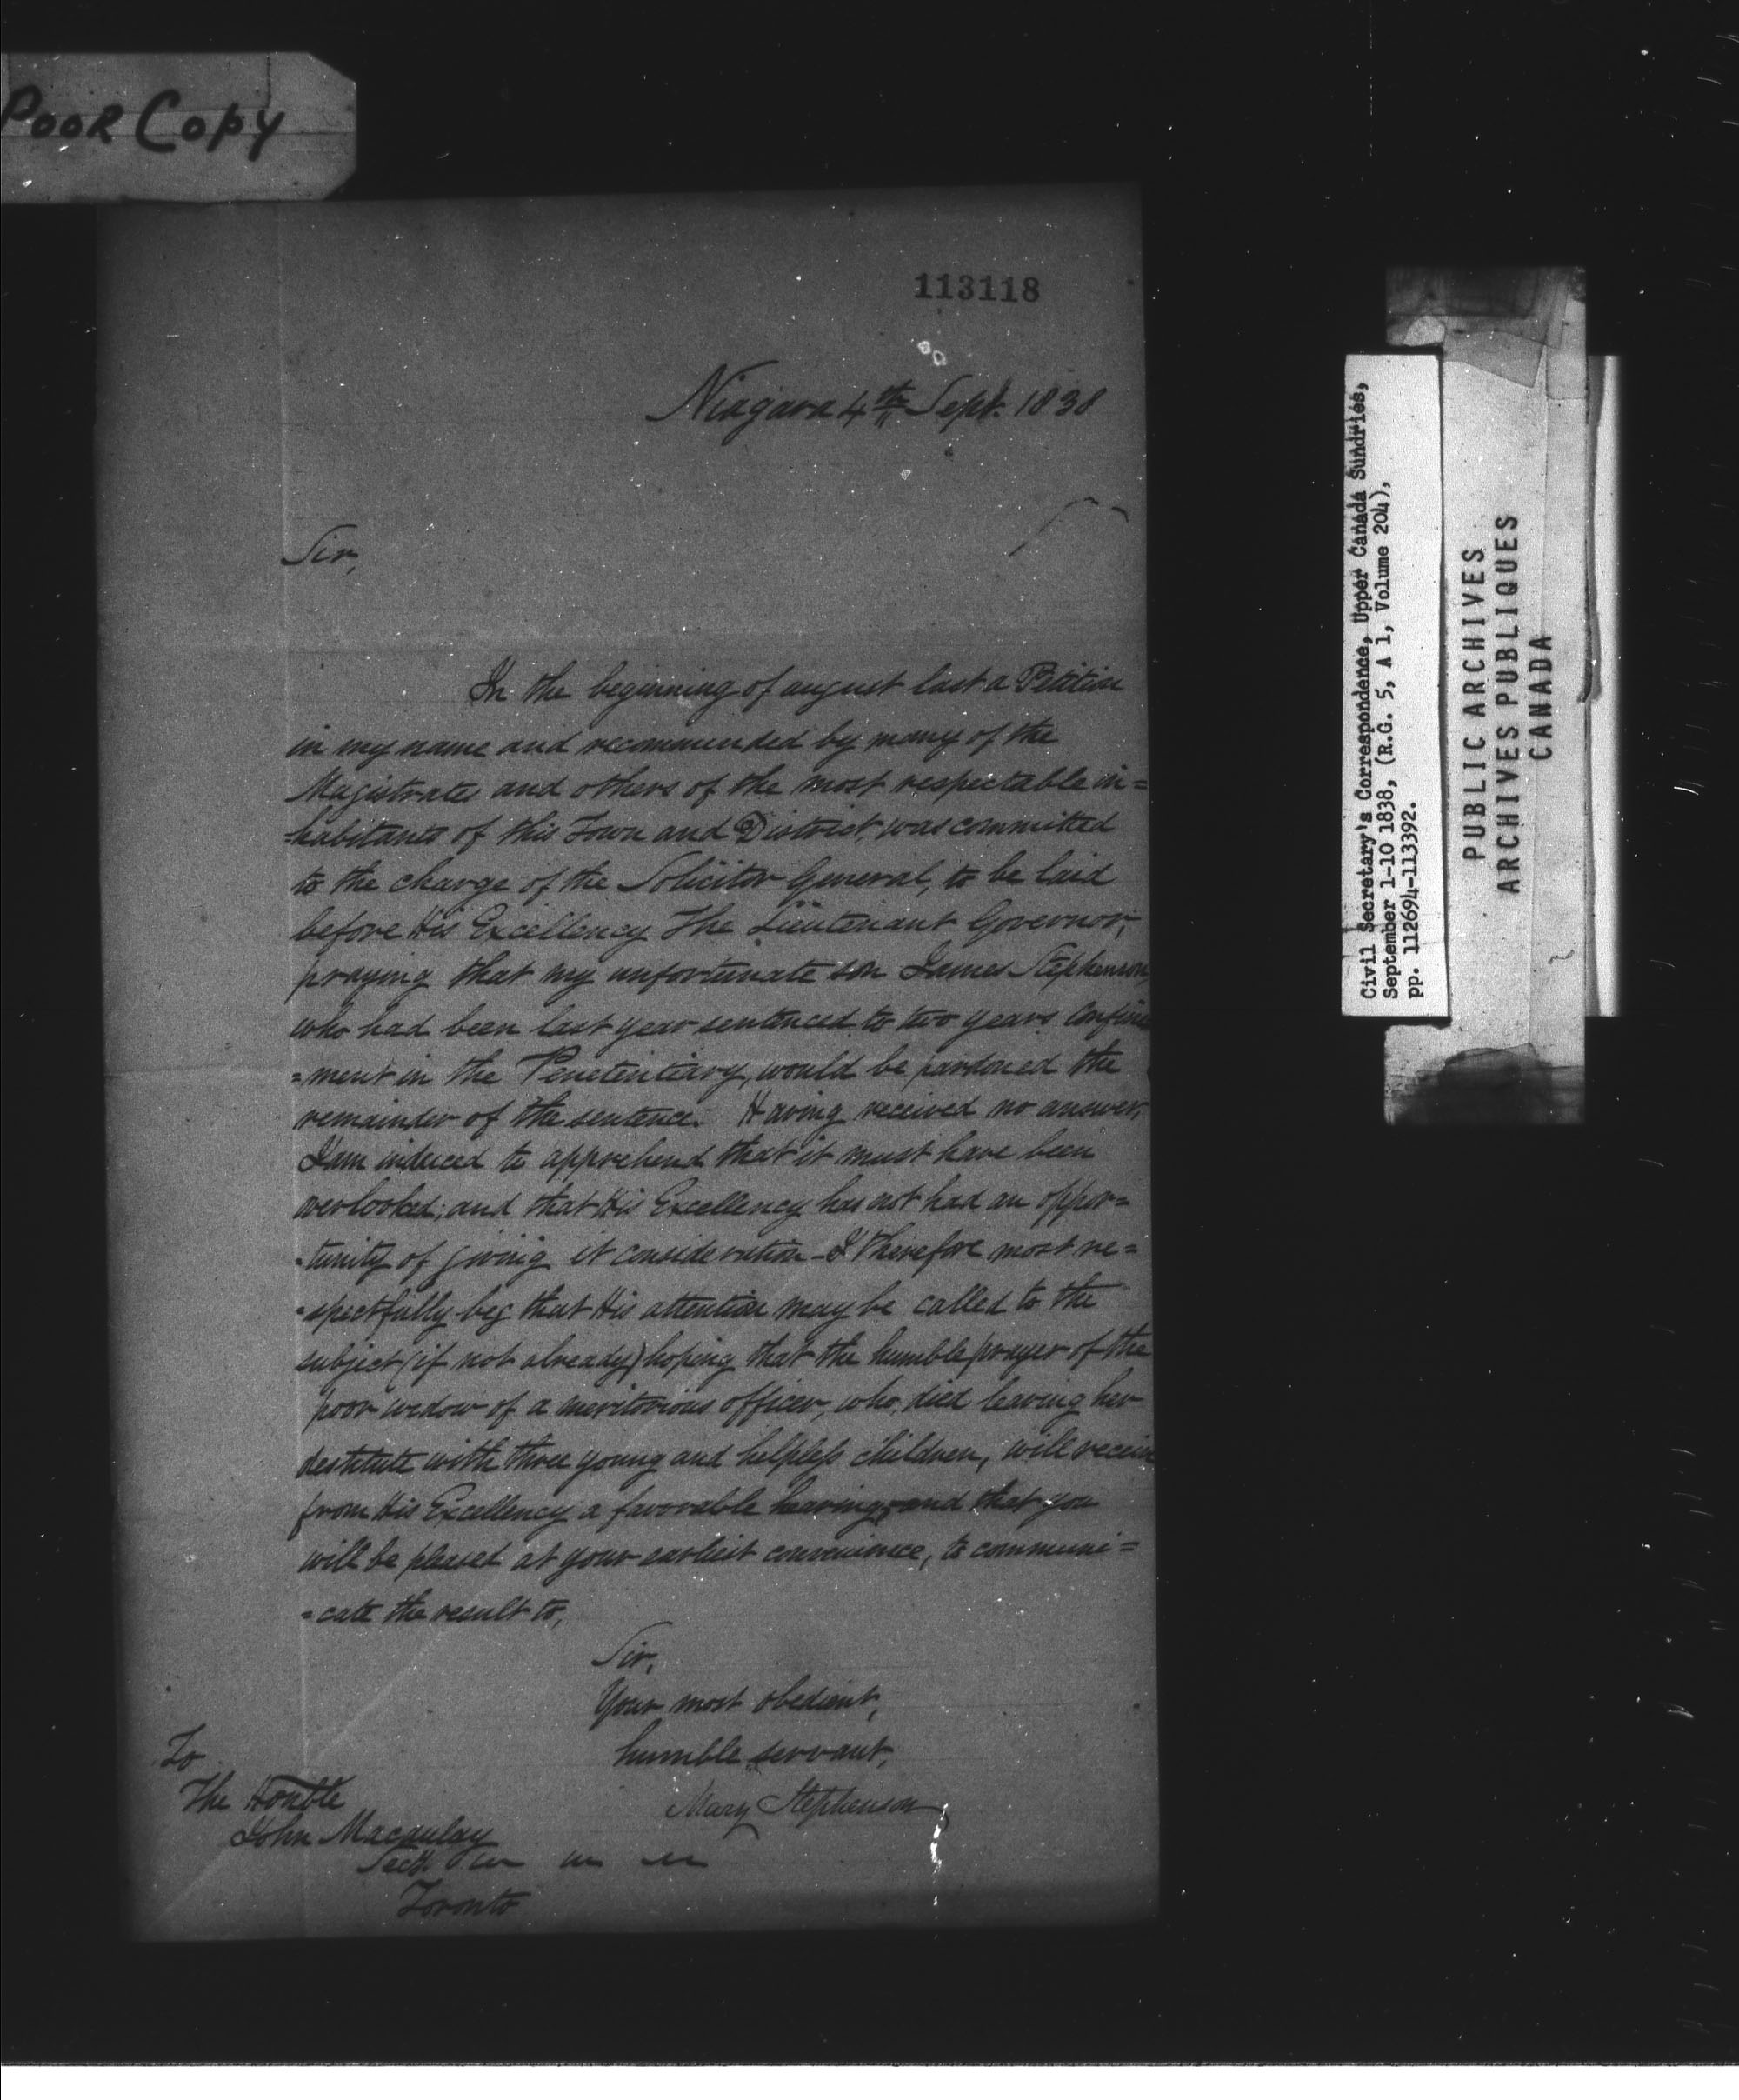 POOR COPY
113118
Niagara 4th Sept. 1838
Sir,
In the beginning of august last a Petition
in my name and recommended by many of the
Magistrates and others of the most respectable in=
-habitants of this Town and District, was committed
to the charge of the Solicitor General, to be laid
before His Excellency The Lieutenant Governor,
praying that my unfortunate son James Stephenson,
who had been last year sentenced to two years Confine
=ment in the Penetentiary, would be pardoned the
remainder of the sentence. Having received no answer,
I am induced to apprehend that it must have been
overlooked; and that His Excellency has not had an oppor=
-tunity of giving it consideration - I therefore most re=
-spectfully beg that His attention may be called to the
subject (if not already) hoping that the humble prayer of the
poor widow of a meritorious officer, who, died leaving her
destitute with three young and helpless children, will receive
from His Excellency a favorable hearing, and that you
will be pleased at your earliest convenience, to communi=
=cate the result to,
Sir,
Your most obedient,
humble servant,
Mary Stephenson
To
The Honble
John Macaulay
Secy
Toronto
Civil Secretary's Correspondence, Upper Canada Sundries,
September 1-10 1838, (R.G. 5, A 1, Volume 204),
pp. 112694-113392.
PUBLIC ARCHIVES
ARCHIVES PUBLIQUES
CANADA